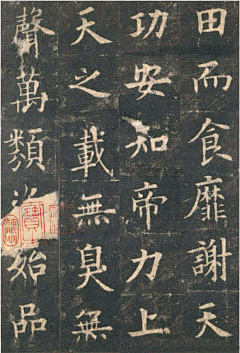 田而食靡謝天
功安知帝力上
天之載無臭無
聲萬類資始品